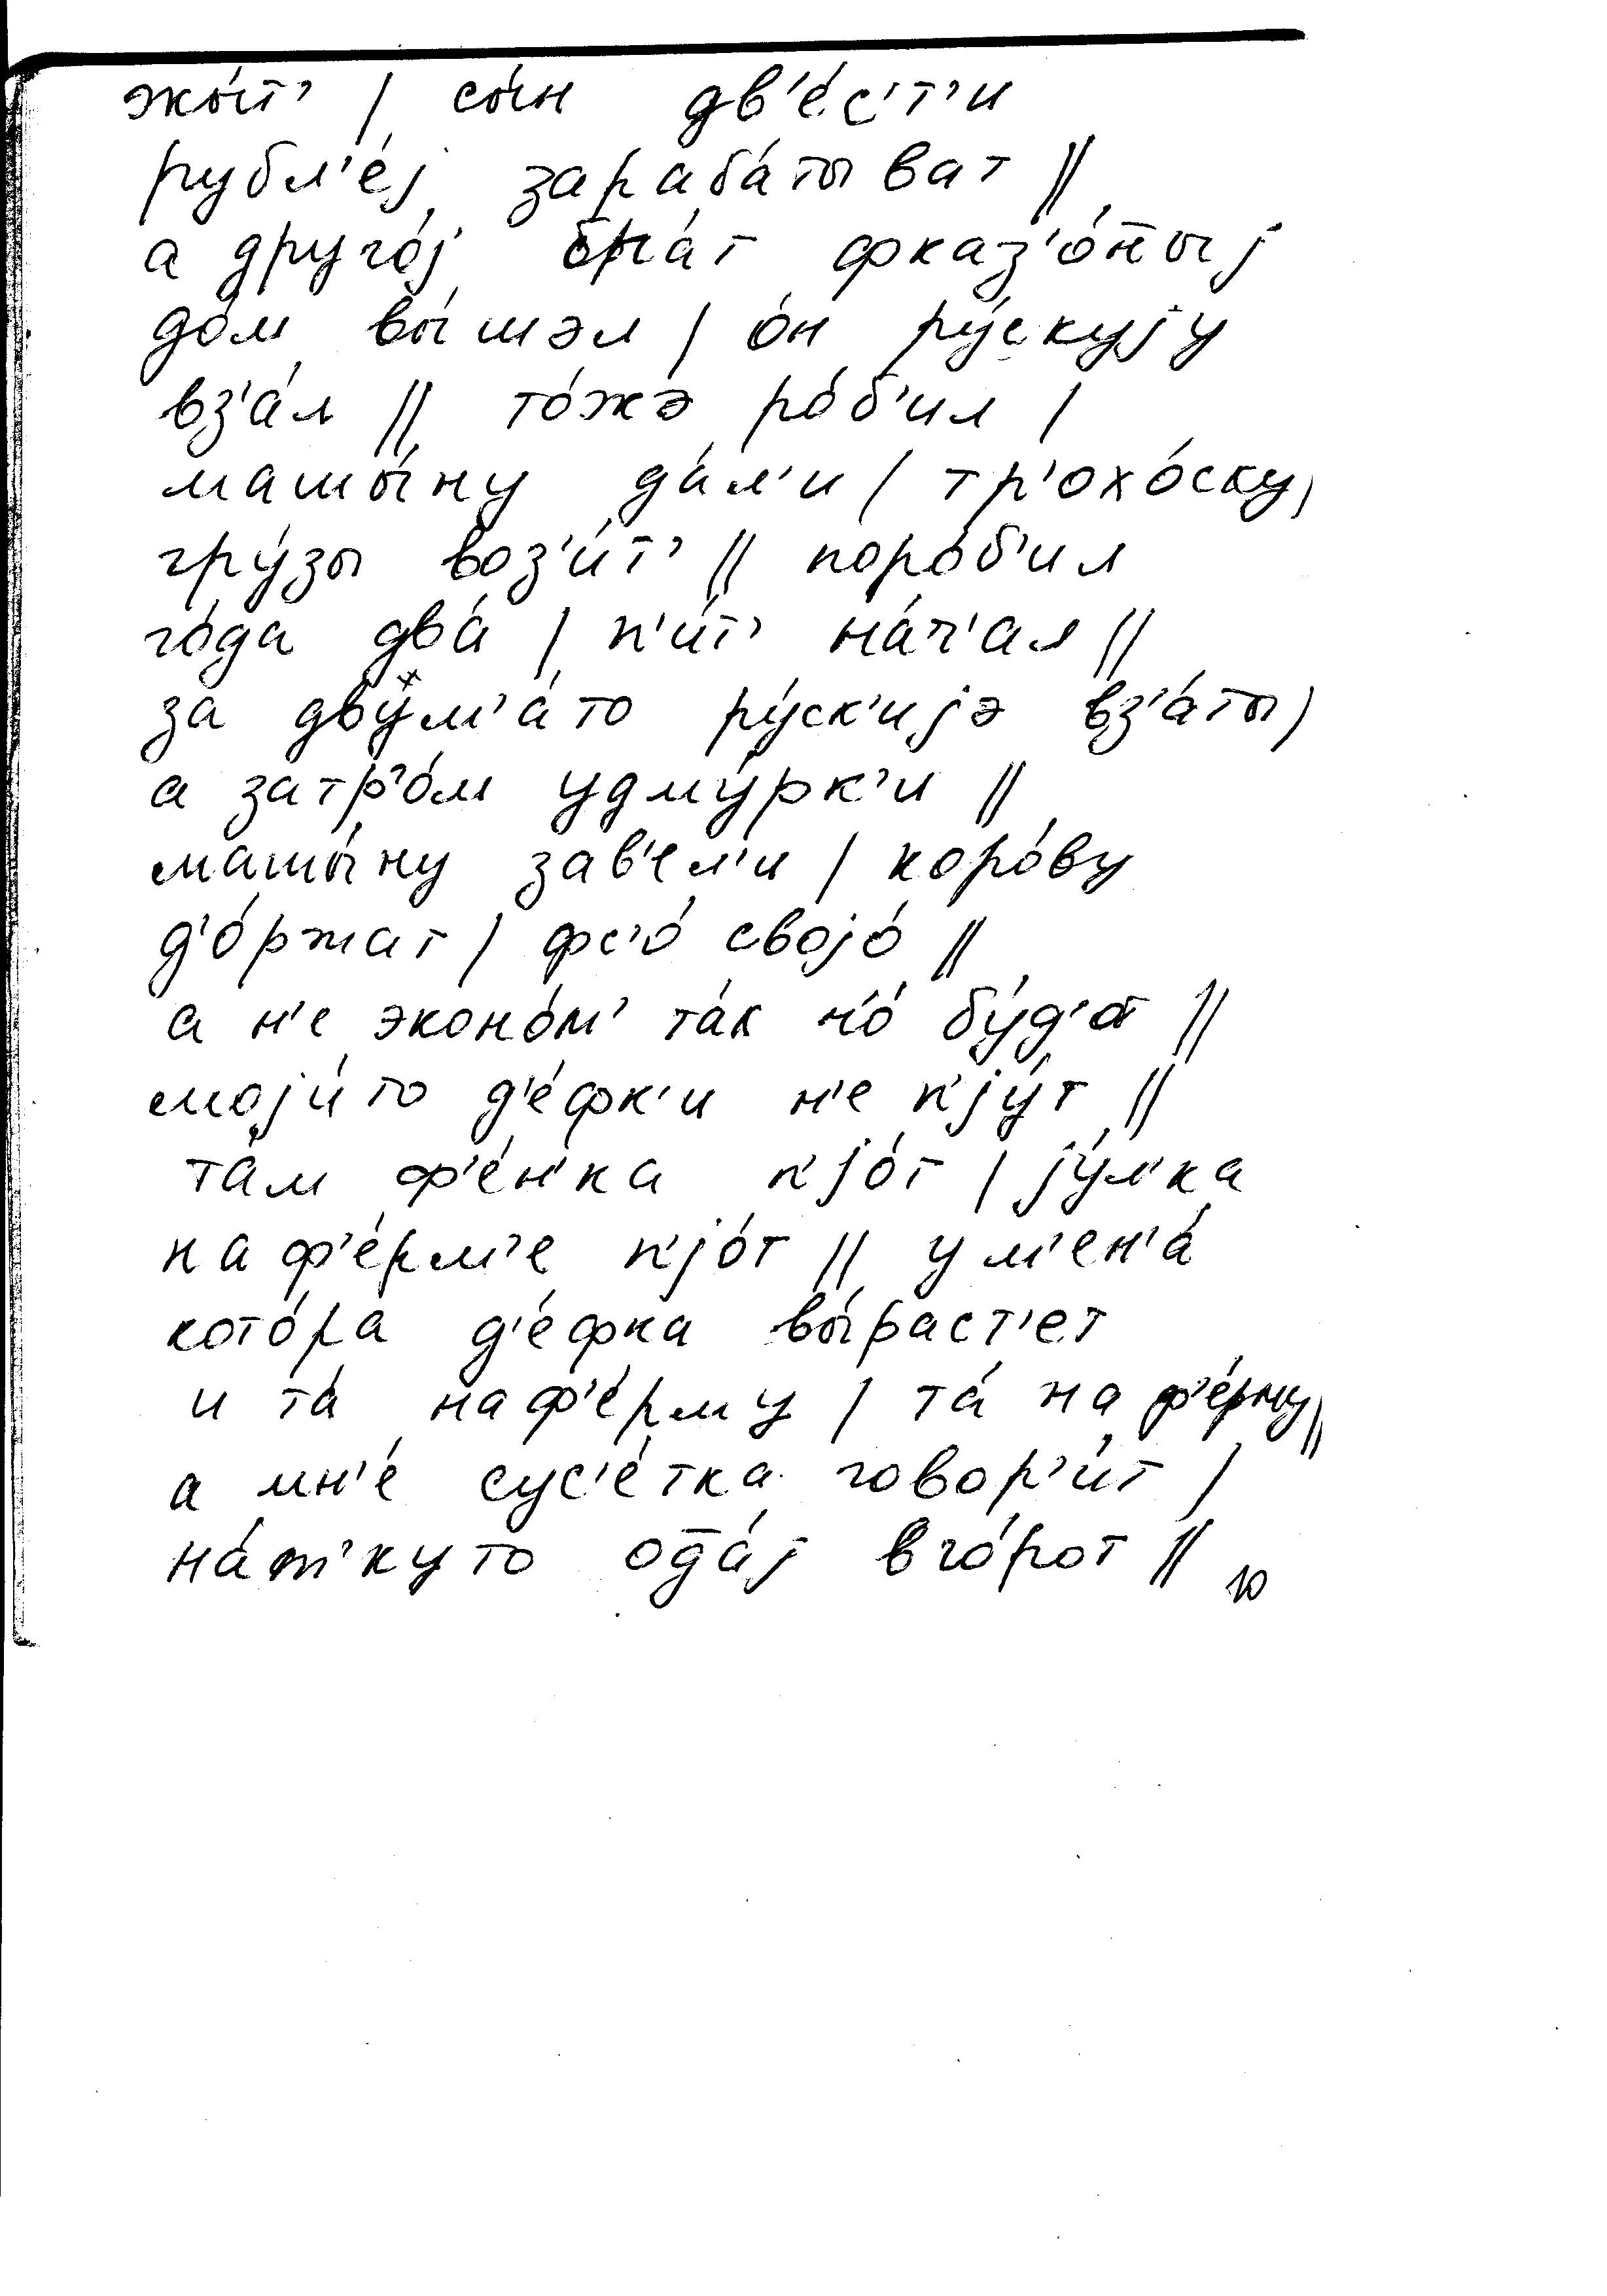 жы́т' | сы́н дв'е́с'т'и
рубл'е́j зараба́тыват ||
а друго́j бра́т фказ'о́н̄ыj
до́м вы́шэл | о́н ру́скуjу
вз'а́л || то́жэ ро́б'ил |
машы́ну да́л'и | тр'охо́ску |
гру́зы воз'и́т' || поро́б'ил
го́да два́ | п'и́т' на́ч'ал ||
за двум'а́то ру́ск'иjэ вз'а́ты |
а затр'о́м удму́рк'и ||
машы́ну зав'ел'и | коро́ву
д'о́ржат | фс'о́ своjо́ ||
а н'е эконо́м' та́к н'о́ бу́д'от ||
моjи́то д'е́фк'и н'е п'jу́т ||
та́м ф'е́н'ка п'jо́т | jу́л'ка
на ф'е́рм'е п'jо́т || у м'ен'а́
кото́ра д'е́фка вы́раст'ет
и та́ на ф'е́рму | та́ на ф'е́рму ||
а мн'е́ сус'е́тка говор'и́т |
на́т'куто од̄а́j в го́рот || 10